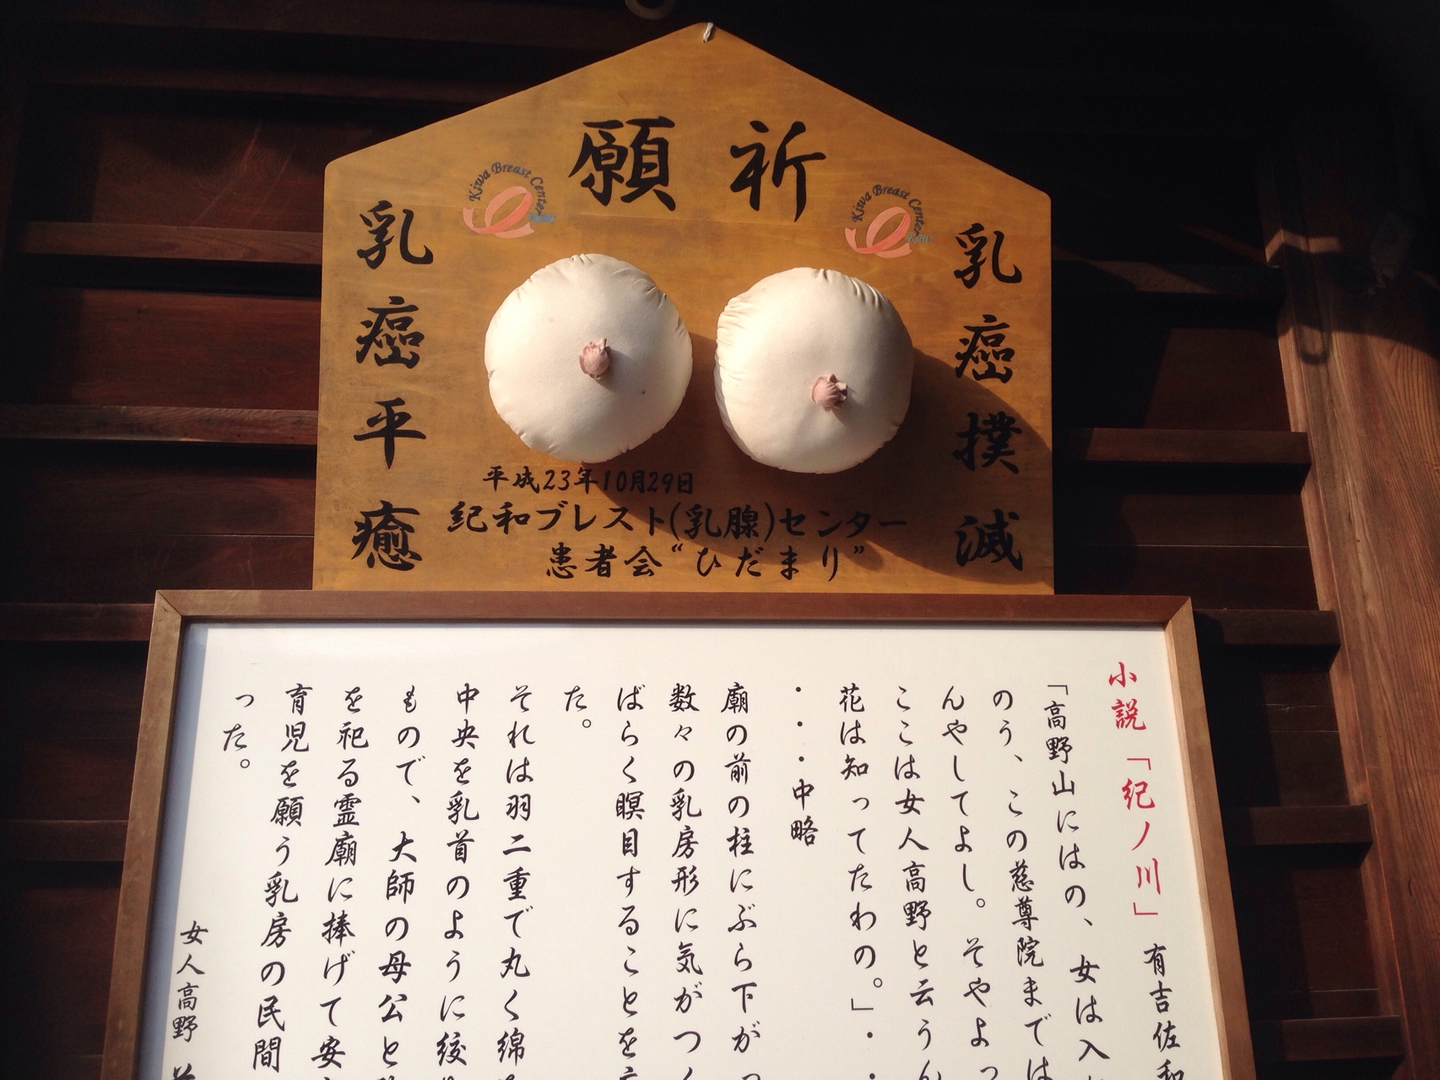 祈願
Kiwa Breast Center
Kiwa Breast Center
乳癌撲滅
乳癌平癒
平成23年10月29日
紀和ブレスト(乳腺)センター
患者会“ひだまり”
小説「紀ノ川」 有吉佐和
「高野山にはの、女は入
のう、この慈尊院までは
んやしてよし。そやよっ
ここは女人高野と云うん
花は知ってたわの。」・
・・・中略
廟の前の柱にぶら下がっ
数々の乳房形に気がつく
ばらく瞑目することを
た。
それは羽二重で丸く綿
中央を乳首のように絞
もので、大師の母公と
を祀る霊廟に捧げて安
育児を願う乳房の民間
った。
女人高野